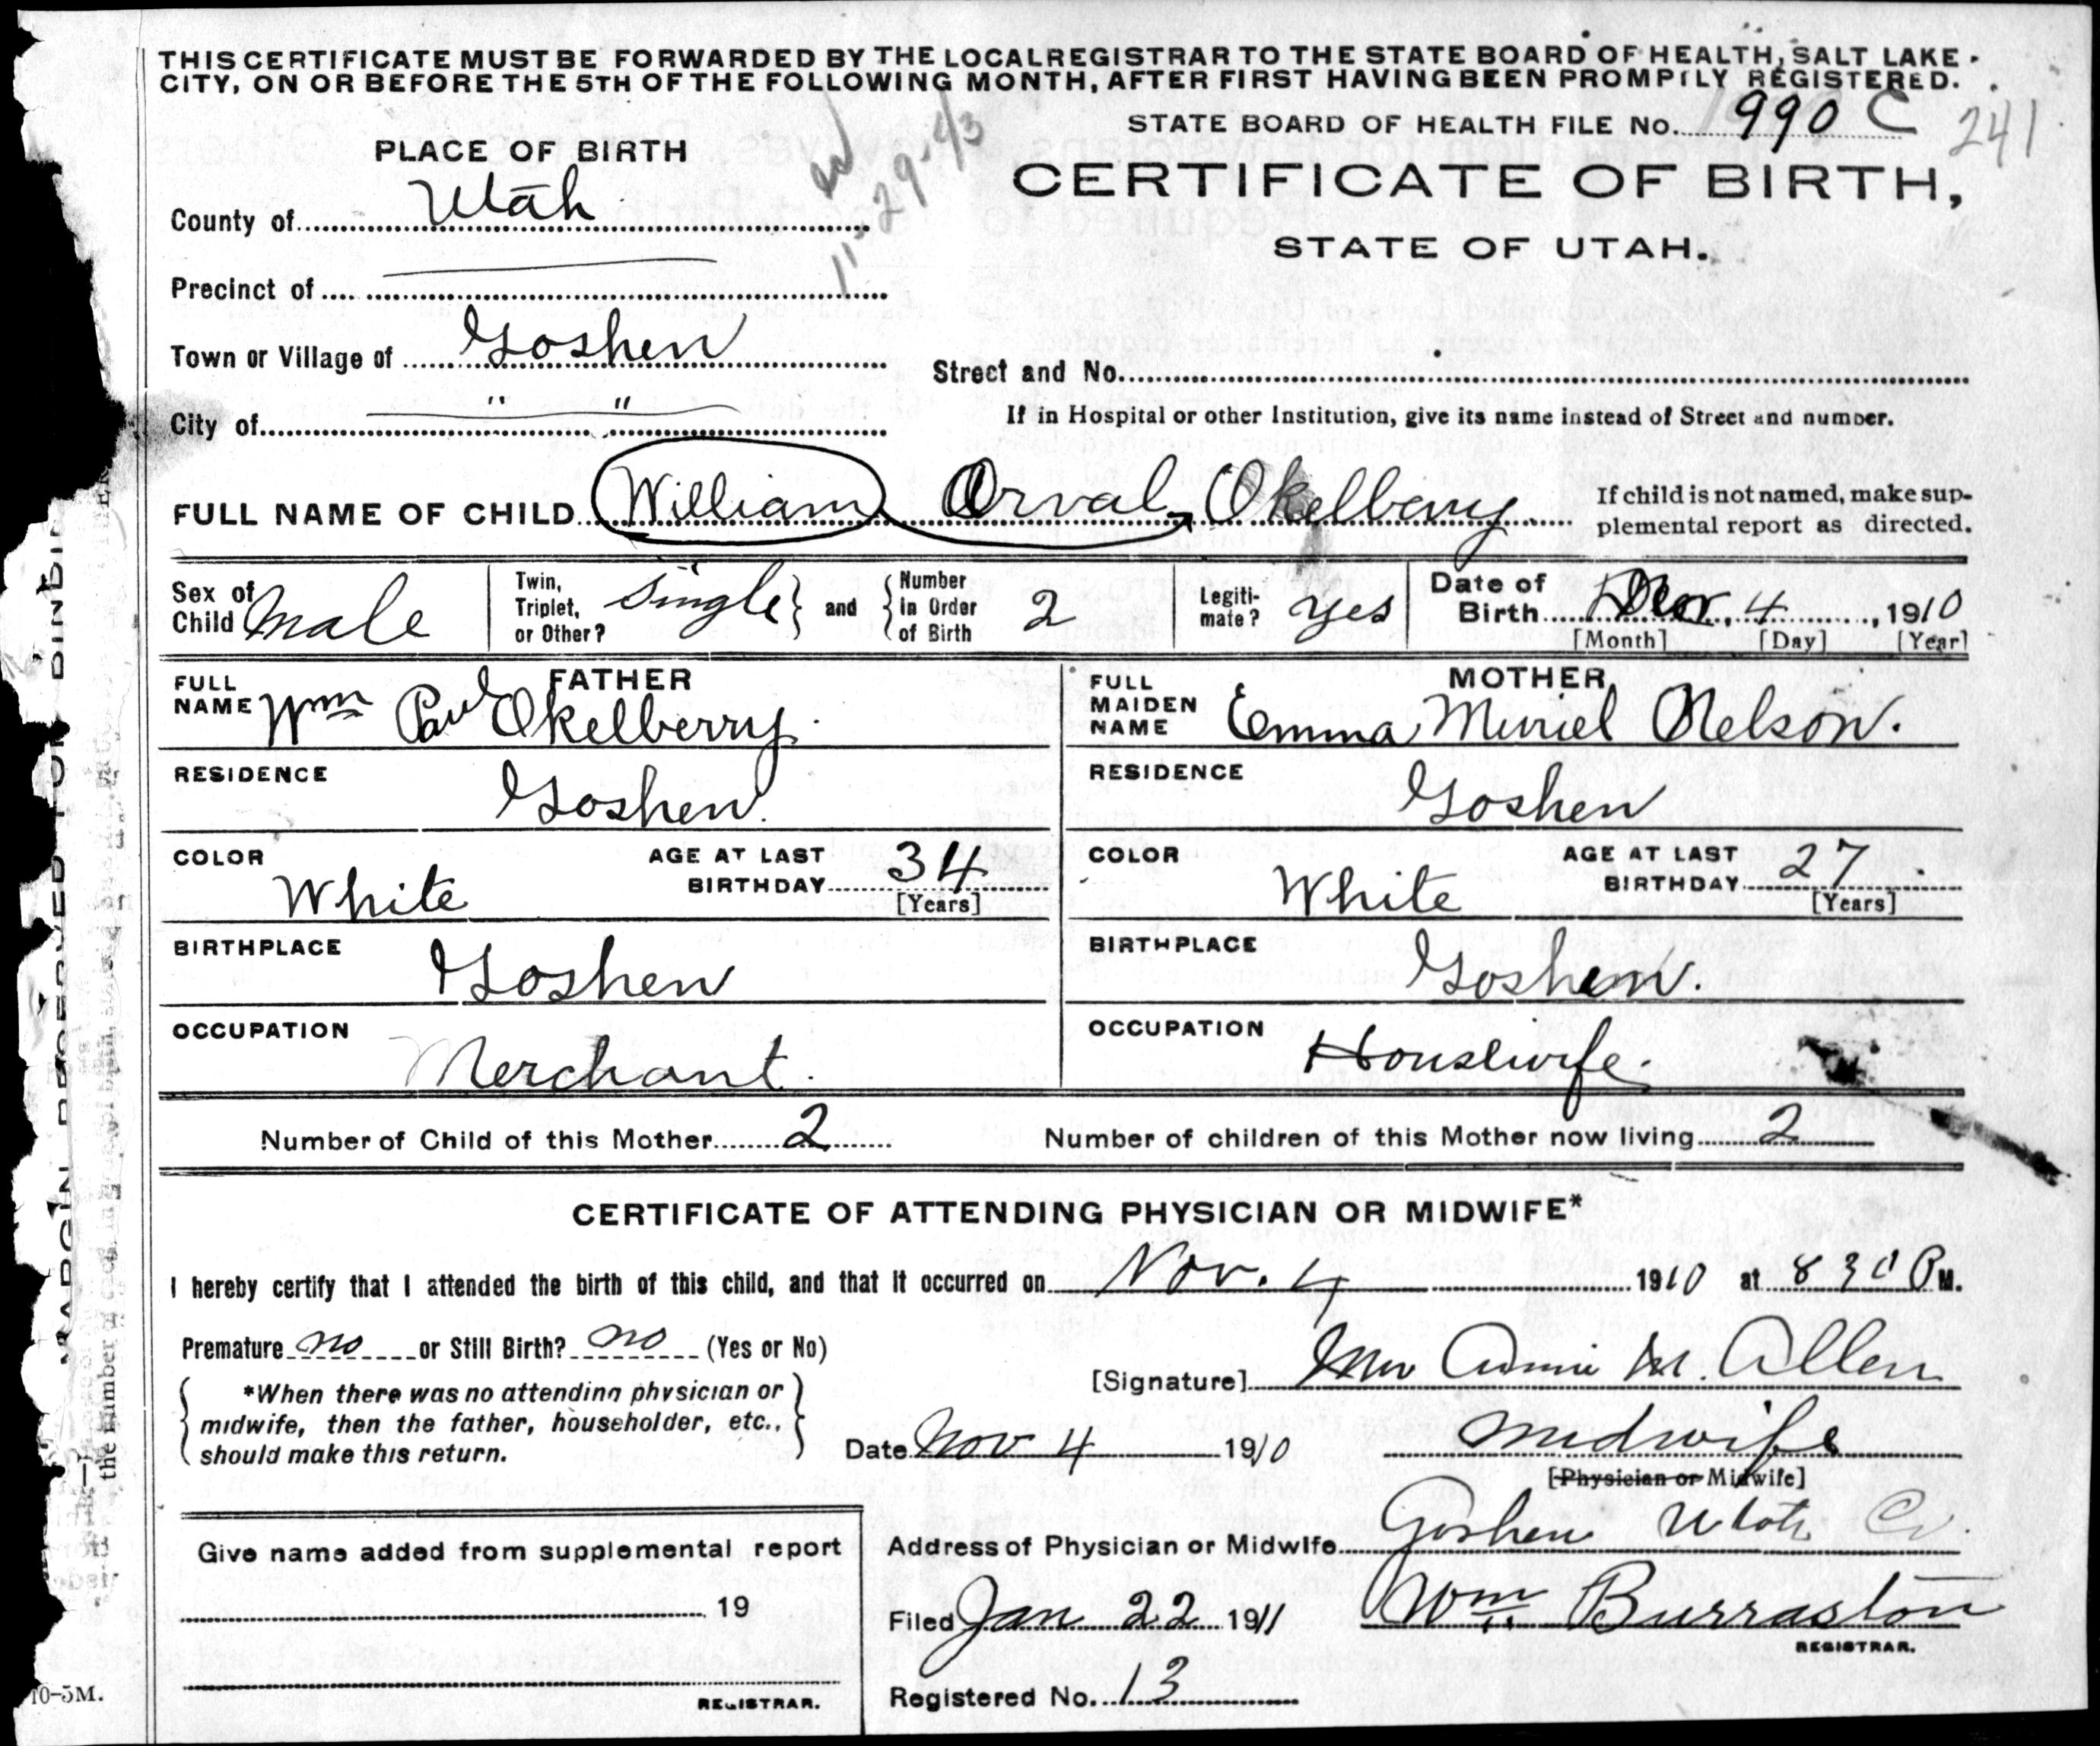 THIS CERTIFICATE MUST BE FORWARDED BY THE LOCAL REGISTRAR TO THE STATE BOARD OF HEALTH, SALT LAKE
CITY, ON OR BEFORE THE 5TH OF THE FOLLOWING MONTH, AFTER FIRST HAVING BEEN PROMPTLY REGISTERED.
STATE BOARD OF HEALTH FILE No. 990 C 241
11-29-43
PLACE OF BIRTH
CERTIFICATE OF BIRTH,
STATE OF UTAH.
County of Utah
Precinct of
Town or Village of Goshen
Street and No.
City of " "
If in Hospital or other Institution, give its name instead of Street and number.
FULL NAME OF CHILD William Orval Okelberry
If child is not named, make sup-
plemental report as directed.
Sex of Child Male
Twin, Triplet, or Other? Single and Number in Order of Birth 2
Legiti-mate? yes
Date of Birth 4, 1910
[Month] [Day] [Year]
FATHER
FULL NAME Wm Paul Okelberry
RESIDENCE Goshen
COLOR White AGE AT LAST BIRTHDAY 34 [Years]
BIRTHPLACE Goshen
OCCUPATION Merchant
MOTHER
FULL MAIDEN NAME Emma Muriel Nelson.
RESIDENCE Goshen
COLOR White AGE AT LAST BIRTHDAY 27 [Years]
BIRTHPLACE Goshen.
OCCUPATION Housewife
Number of Child of this Mother 2 Number of children of this Mother now living 2
CERTIFICATE OF ATTENDING PHYSICIAN OR MIDWIFE*
I hereby certify that I attended the birth of this child, and that it occurred on Nov. 4 1910 at 8 30 P M.
Premature no or Still Birth? no (Yes or No)
*When there was no attending physician or
midwife, then the father, householder, etc.,
should make this return.
[Signature] Mrs Annie M. Allen
Date Nov 4 1910 Midwife
[Physician or Midwife]
Address of Physician or Midwife Goshen Utah Co.
Give name added from supplemental report
19
REGISTRAR.
Filed Jan 22 1911 Wm Burraston
REGISTRAR.
Registered No. 13
10-5M.
MARGIN RESERVED FOR BINDING
the number